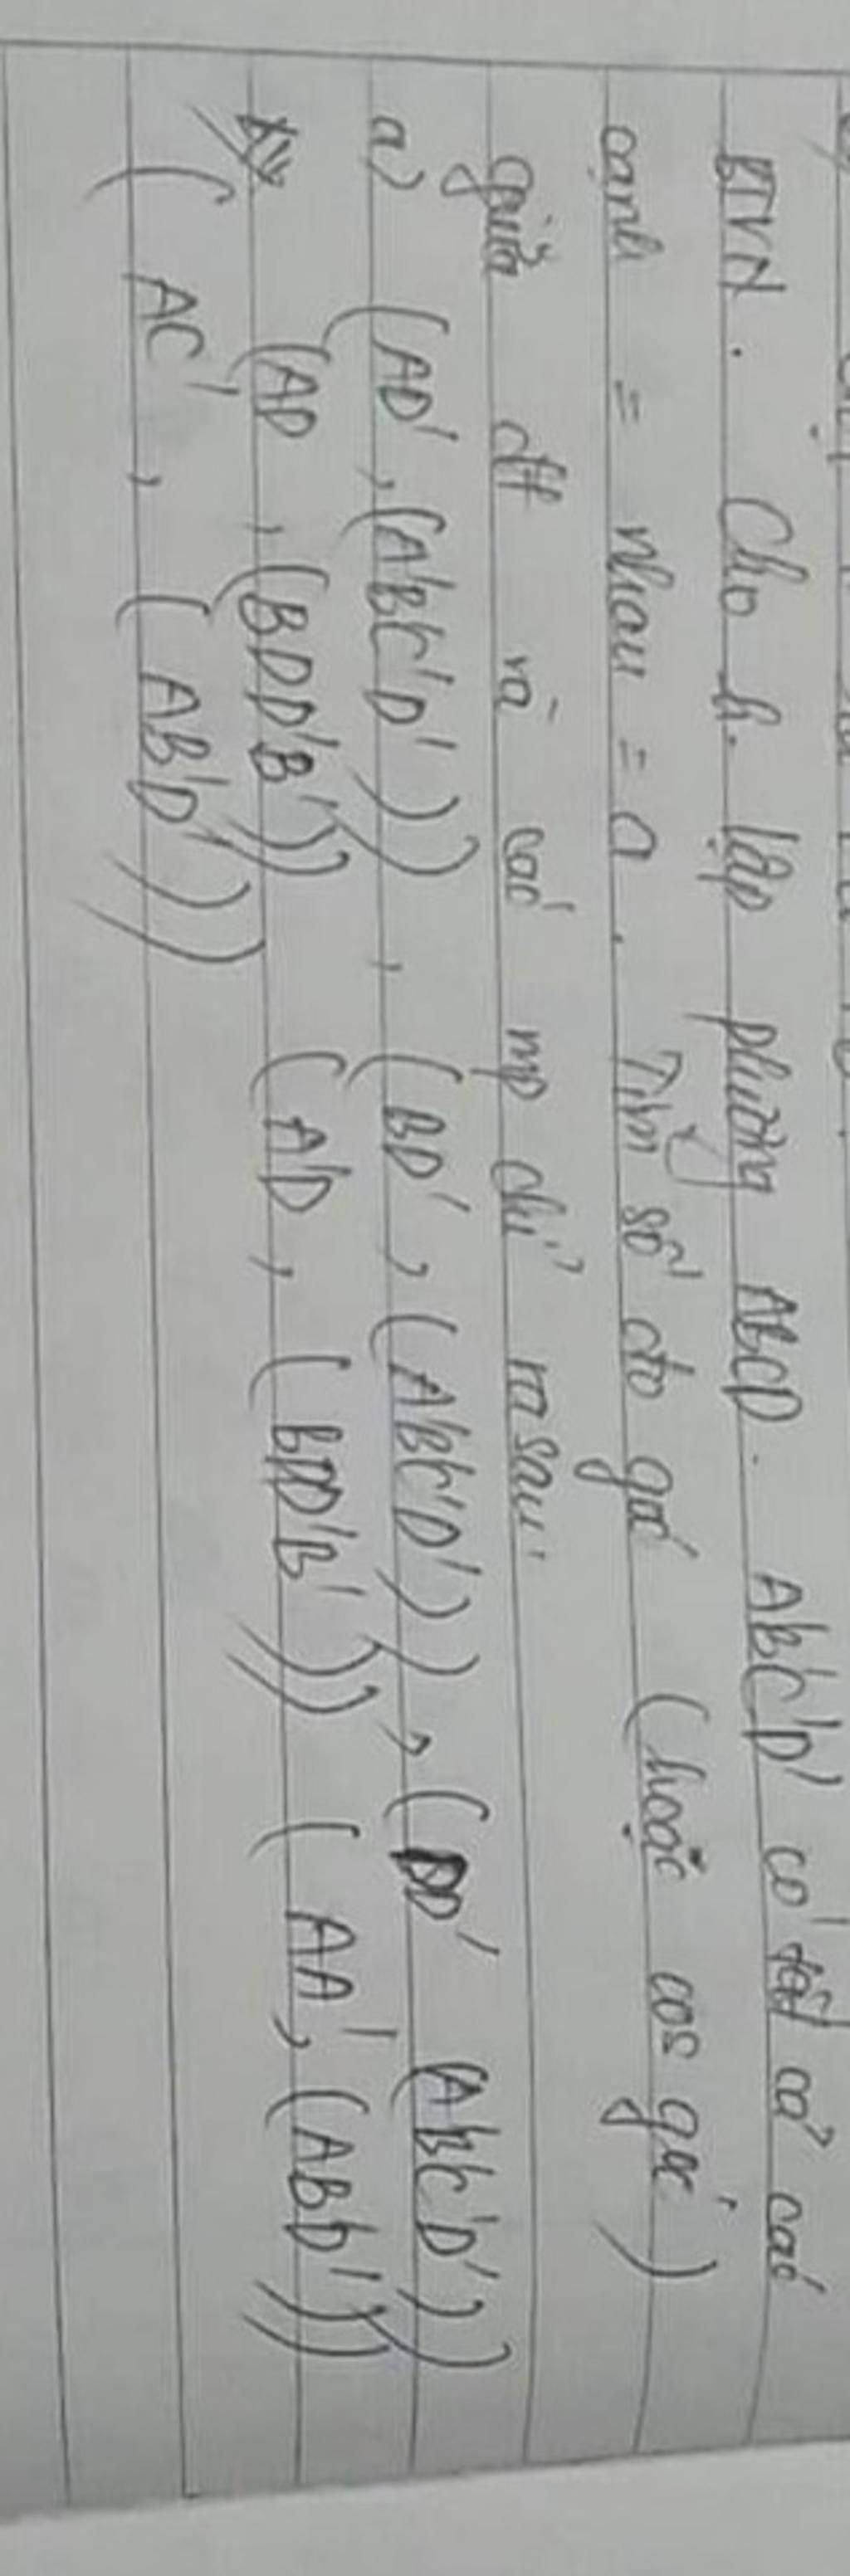 BTVN. Cho h. lập phương ABCD. A'B'C'D' có tất cả các
cạnh = nhau = a. Tìm số đo góc (hoặc cos góc)
giữa đt và các mp chỉ ra sau:
a) (AD', (A'B'C'D')), (BD', (A'B'C'D')), (DD' (A'B'C'D'))
(AD, (BDD'B')) (A'D, (BDD'B')) (AA', (ABD'))
(AC', (AB'D'))